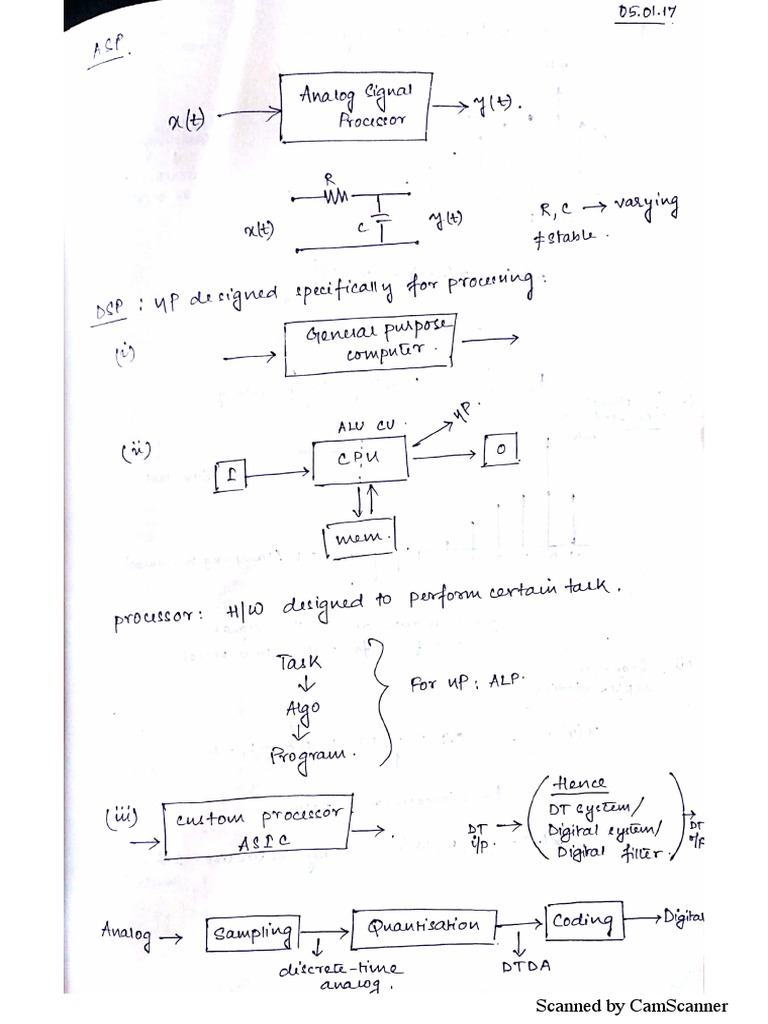 05.01.17
ASP.
x(t)
Analog Signal
Processor
y(t).
R
x(t)
C
y(t)
R, C → varying
≠ stable.
DSP : μP designed specifically for processing :
(i)
General purpose
computer.
(ii)
ALU CU.
μP.
I
CPU
O
mem.
processor: H/W designed to perform certain task.
Task
↓
Algo
↓
Program.
For μP: ALP.
(iii)
custom processor
ASIC
DT
i/p.
Hence
DT system/
Digital system/
Digital filter.
DT
o/p
Analog → Sampling → Quantisation → Coding → Digital
discrete-time
analog.
DTDA
Scanned by CamScanner